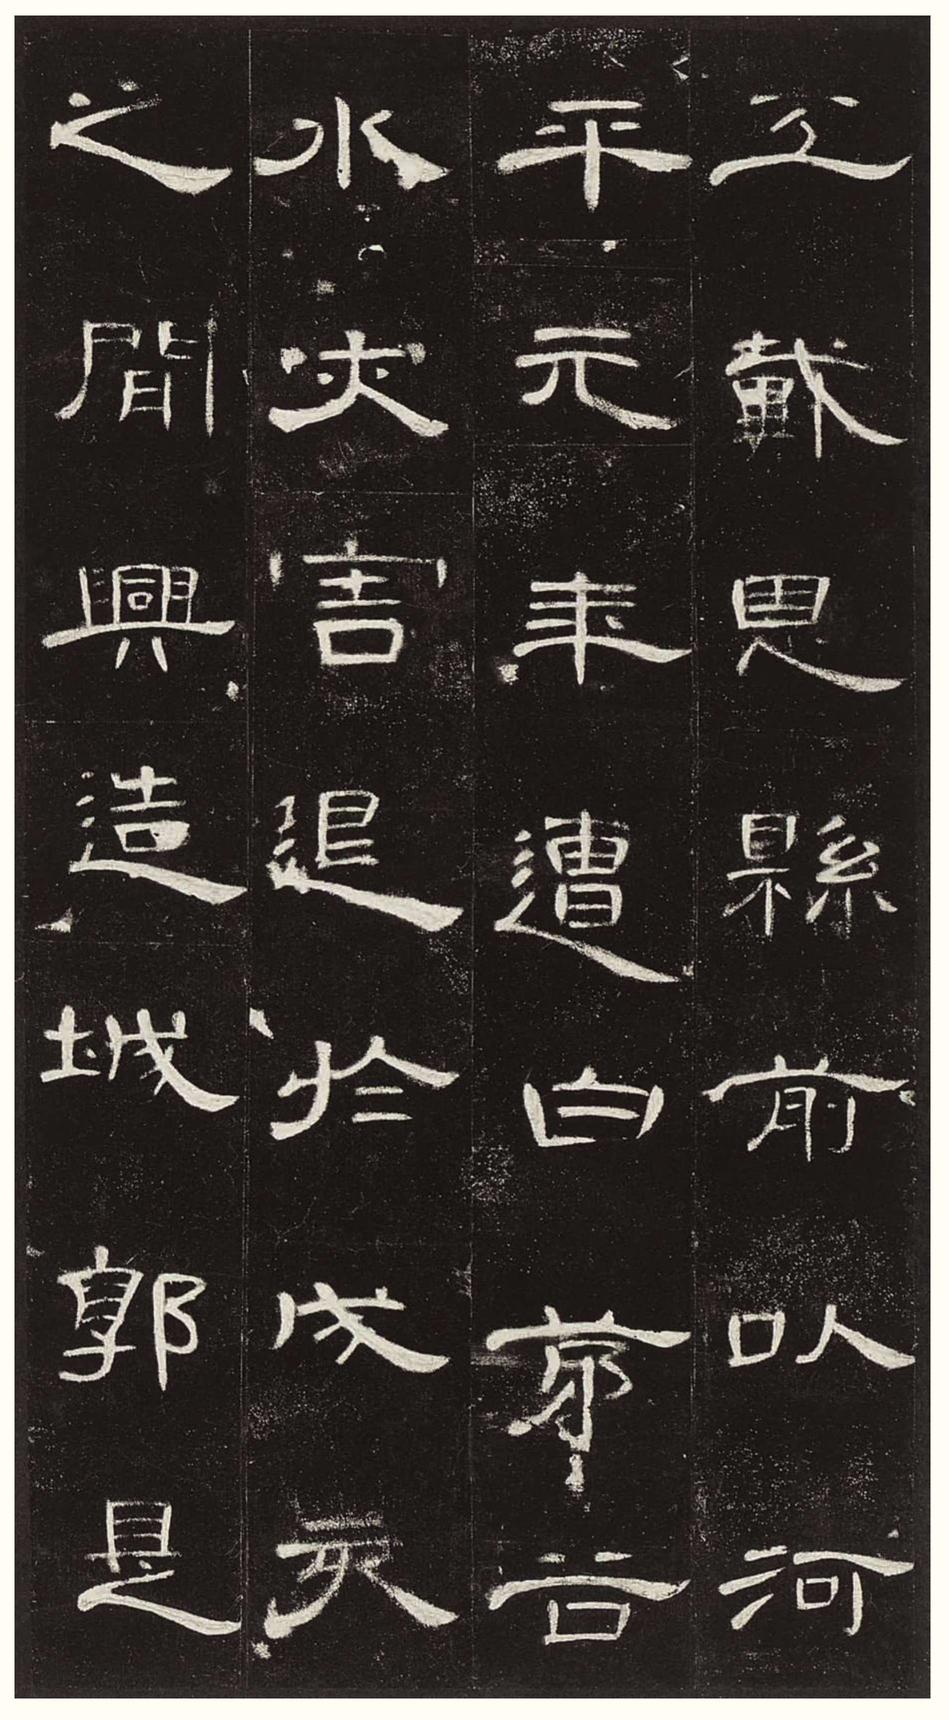 工戴恩縣前以河
平元年遭白茅谷
水災害退於戌亥
之間興造城郭是